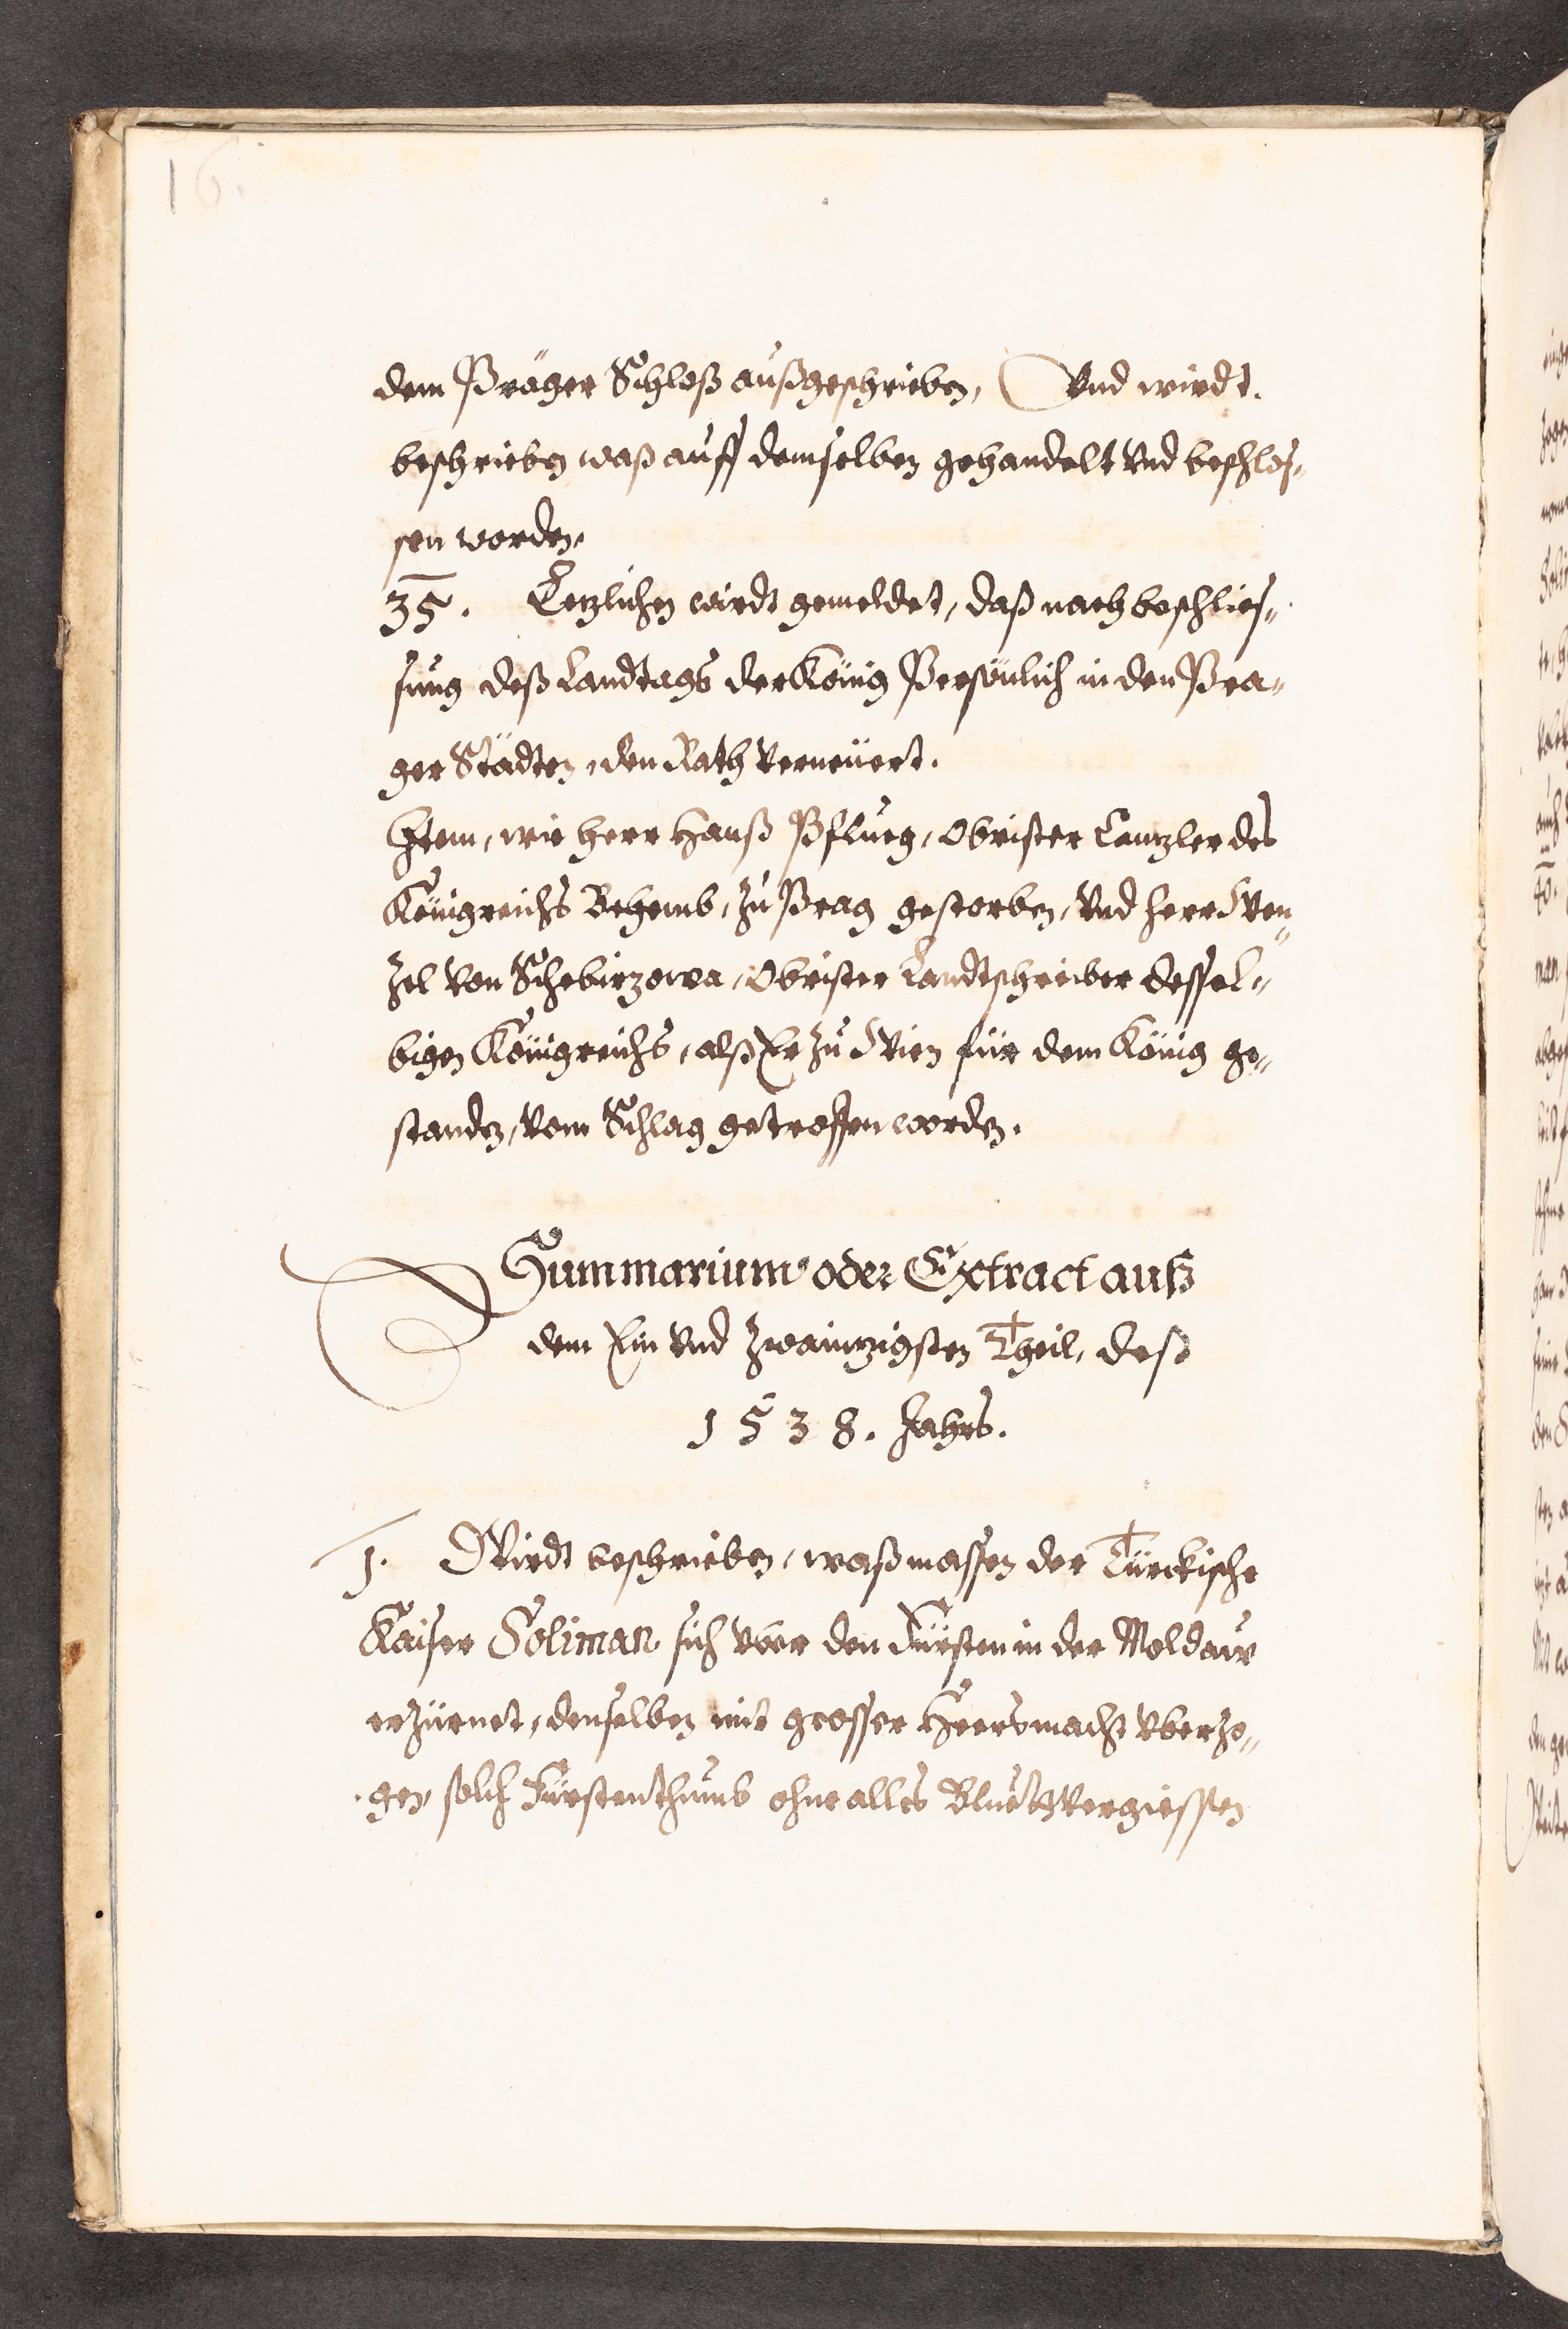 16.
dem Präger Schloß außgeschrieben, Vnd wirdt.
beschrieben waß auff demselben gehandelt vnd beschlos„
sen worden.
35. Letzlichen wirdt gemeldet, daß nach beschlies„
sung deß Landtags der König Persönlich in den Pra„
ger Städten, den Rath verneüert.
Item, wie herr Hanß Pflueg, Obrister Cantzler des
Königreichs Behemb, zu Prag gestorben, vnd herr Wen„
zel von Schebirzowa, Obrister Landtschreiber dessel„
bigen Königreichs, alß Er zu Wien für dem König ge„
standen, vom Schlag getroffen worden.
Summarium oder Extract auß
dem Ein vnd zwaintzigsten Theil, deß
1538. Jahrs.
1. Wirdt beschrieben, waßmassen der Türckische
Kaiser Soliman sich vber den Fürsten in der Moldaw
erzürnet, denselben mit grosser Heersmacht vberzo„
gen, solch Fürstenthumb ohne alles Bluetsvergiessen